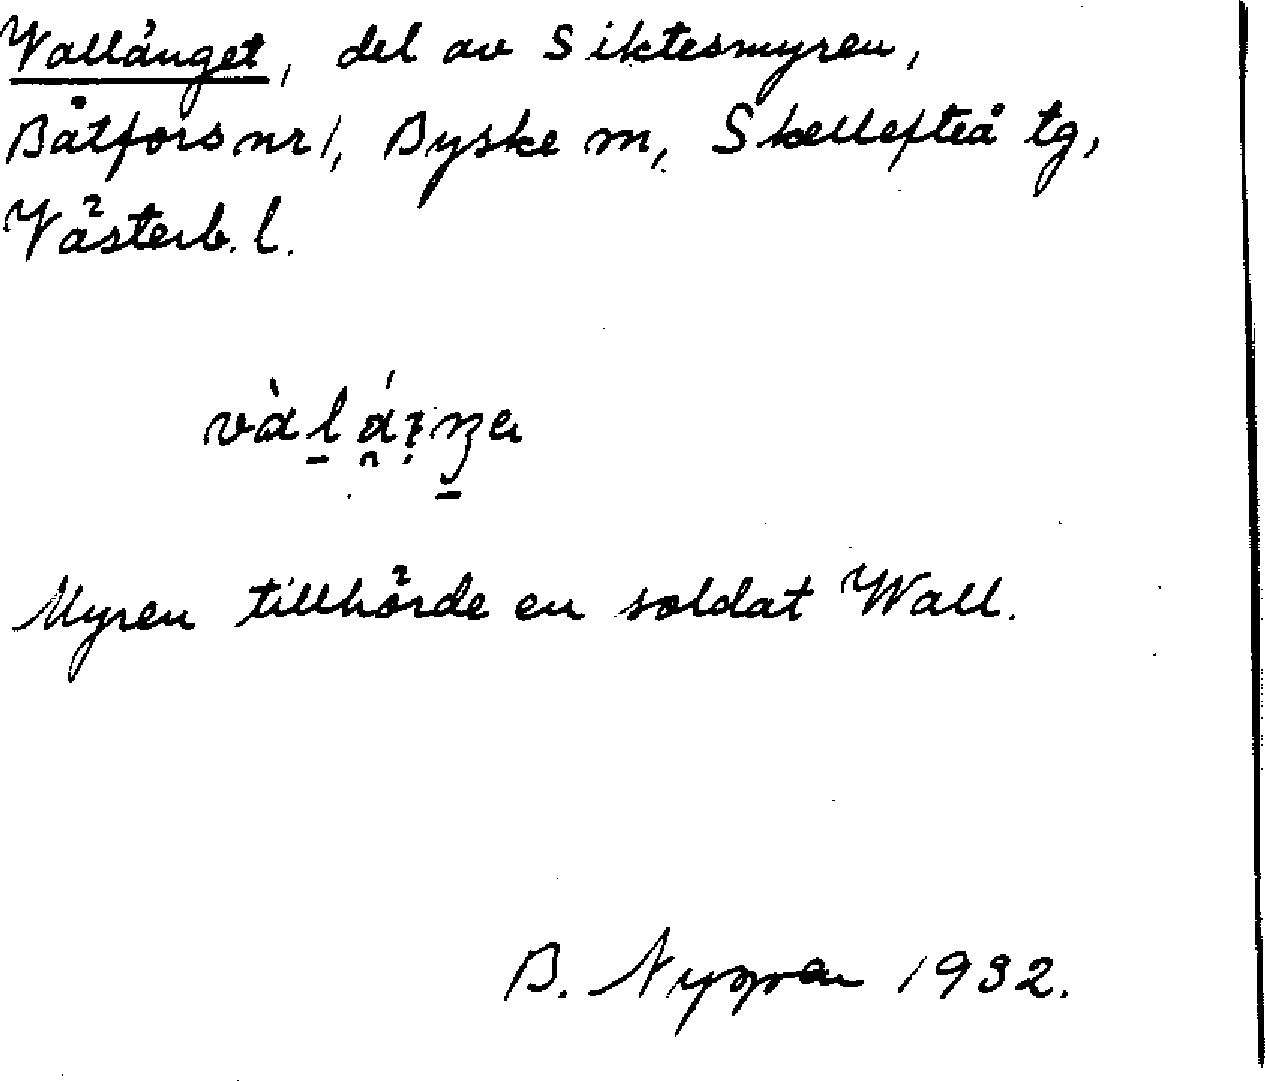 Wallänget, del av Siktesmyren,
Båtfors nr 1, Byske m, Skellefteå tg,
Västerb. l.
Myren tillhörde en soldat Wall.
B. Nygren 1932.